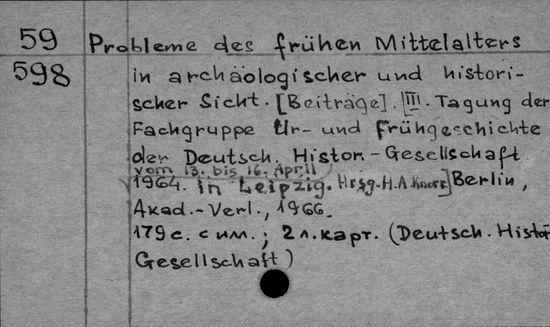 59 Probleme des frühen Mittelalters
598 in archäologischer und histori-
scher Sicht. [Beiträge]. III. Tagung der
Fachgruppe Ur- und Frühgeschichte
der Deutsch. Histor.-Gesellschaft
vom 13. bis 16. April
1964. in Leipzig. Hrsg. H.A Knorr] Berlin,
Akad.-Verl., 1966.
179 с. с илл.; 2 л. карт. (Deutsch. Histor
Gesellschaft)